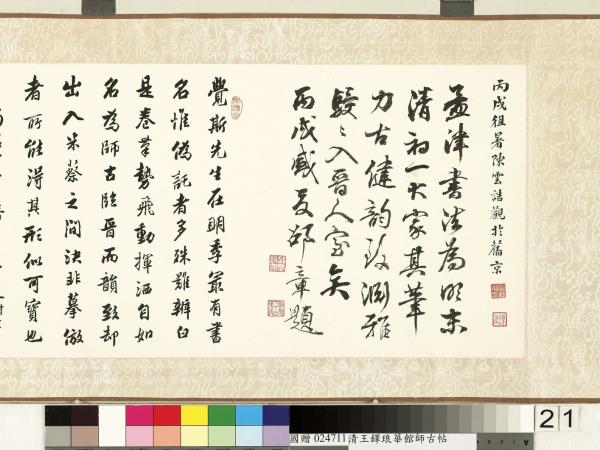 丙戌徂暑陳雲誥觀於舊京
孟津書法為明末
清初一大家其筆
力古健韵致淵雅
駸〻入晉人室矣
丙戌盛夏邵章題
覺斯先生在明季最有書
名惟偽託者多殊難辨白
是卷筆勢飛動揮洒自如
名為師古臨晉而韻致却
出入米蔡之間決非摹倣
者所能得其形似可寶也
國贈 024711清王鐸琅華館師古帖
21